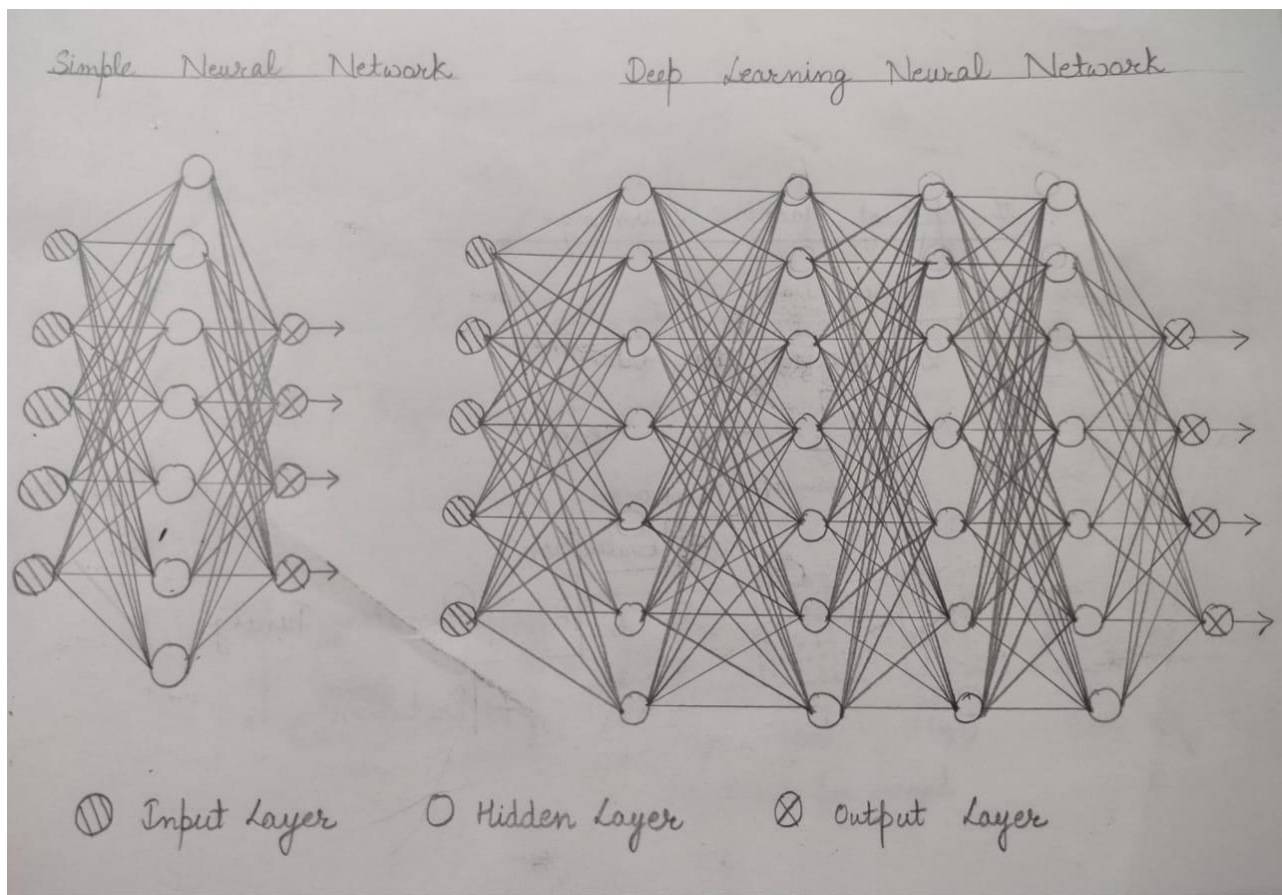 Simple Neural Network
Deep Learning Neural Network
Input Layer
Hidden Layer
Output Layer